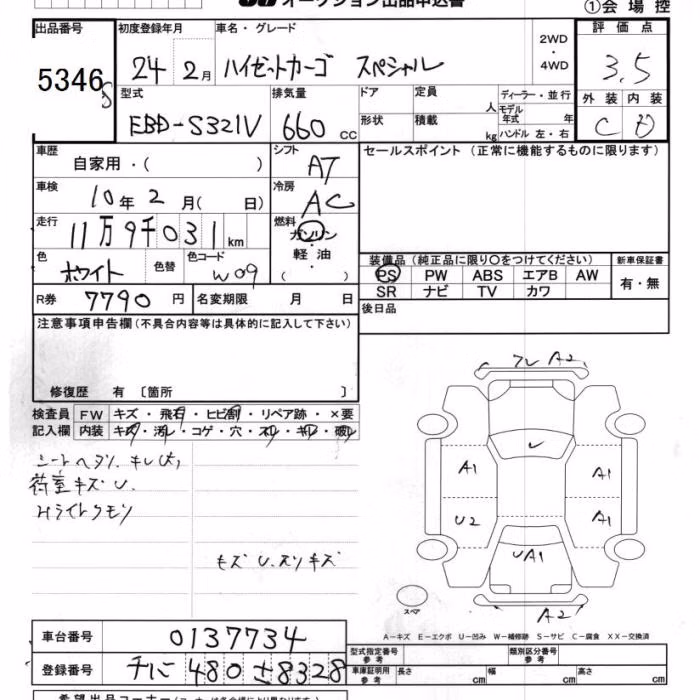 オークション出品申込書
①会場控
出品番号
初度登録年月 車名・グレード 2WD・4WD 評価点
5346 S 24年 2月 ハイゼットカーゴ スペシャル 3.5
型式 排気量 ドア 定員 人 ディーラー・並行 外装 内装
EBD-S321V 660 cc 形状 積載 kg モデル年式 年 ハンドル 左・右 C D
車歴 自家用・( ) シフト AT セールスポイント (正常に機能するものに限ります)
車検 10年 2月 ( 日) 冷房 AC
走行 11万9千031 km 燃料 ガソリン・軽油 ( )
色 ホワイト 色替 色コード W09
装備品 (純正品に限り○をつけてください) 新車保証書
PS PW ABS エアB AW 有・無
SR ナビ TV カワ
R券 7790 円 名変期限 月 日 後日品
注意事項申告欄 (不具合内容等は具体的に記入して下さい)
修復歴 有 〔箇所 〕
検査員 FW キズ・飛石・ヒビ割・リペア跡・×要
記入欄 内装 キズ・汚レ・コゲ・穴・スレ・キレ・破レ
シートヘタリ、キレ
荷室キズU.
Hライトクモリ
キズ U.スリキズ
フレ A2
A1 A1
U2 A1
UA1
スペア
A2
A-キズ E-エクボ U-凹み W-補修跡 S-サビ C-腐食 XX-交換済
車台番号 0137734
型式指定番号 参考 類別区分番号 参考
登録番号 480 8328
車庫証明用 参考 長さ cm 幅 cm 高さ cm
希望出品コーナー